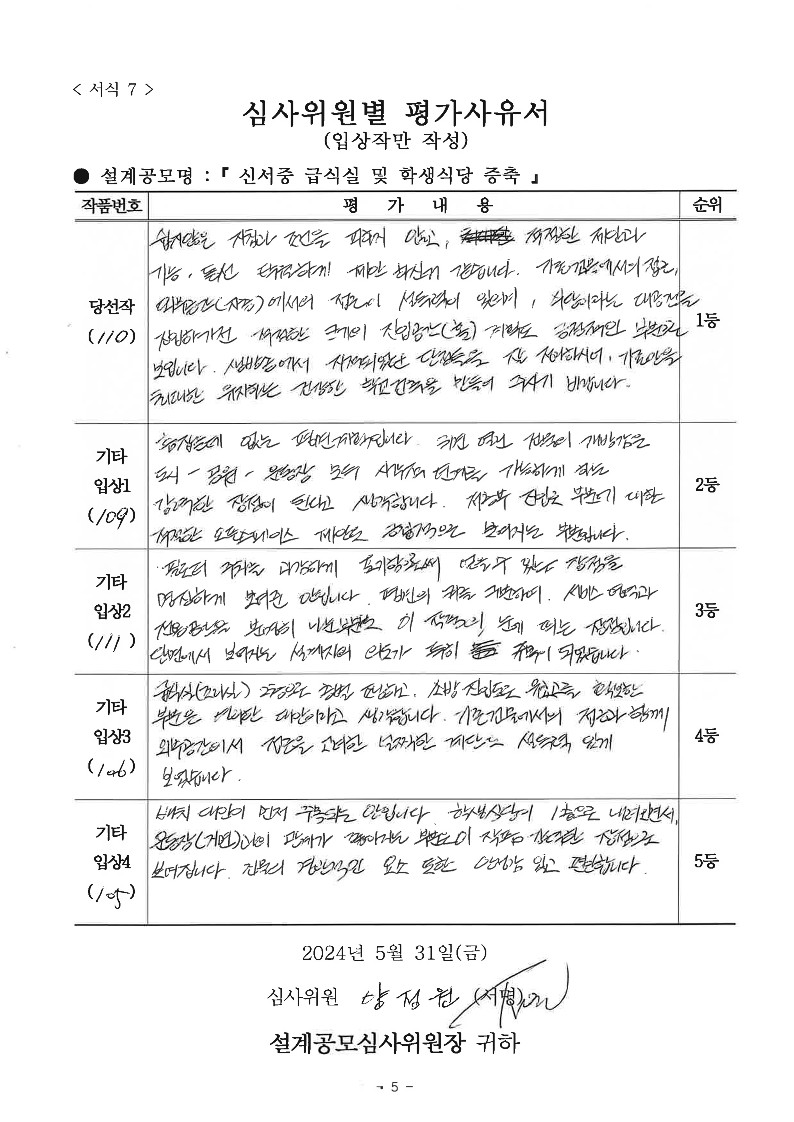 < 서식 7 >
심사위원별 평가사유서
(입상작만 작성)
● 설계공모명 : 『 신서중 급식실 및 학생식당 증축 』
작품번호 평 가 내 용 순위
당선작
(110)
쉽지않은 지침과 조건을 피하지 않고, 적절한 제안과
기능, 동선 제안 하신거 같습니다. 기존건물에서의 접근,
외부공간(지형)에서의 접근이 설득력이 있으며, 식당이라는 대공간을
진입하기전 적절한 크기의 진입공간(홀) 계획도 긍정적인 부분으로
보입니다. 심사평에서 지적되었던 단점들을 잘 기존안을
최대한 유지하는 건강한 학교건축을 만들어 주시기 바랍니다.
1등
기타
입상1
(109)
흠잡을데 없는 평면계획입니다. 개방감은
도시 - 공원 - 운동장 모두 시각적 연계를 가능하게 하는
강력한 장점이 된다고 생각합니다. 진입로 부분에 대한
적절한 제안도 긍정적으로 보여지는 부분입니다.
2등
기타
입상2
(111)
필로티 과감하게 얻을 수 있는 장점을
명확하게 보여준 안입니다. 평면의 서비스 영역과
나눈부분도 이 작품의 눈에 띄는 장점입니다.
단면에서 보여지는 설계자의 의도가 특히 주목이 되었습니다.
3등
기타
입상3
(106)
급식실(조리실) 소방 진입도로 확보한
부분은 영리한 대안이라고 생각합니다. 기존건물에서의 접근과 함께
외부공간에서 접근을 고려한 널찍한 계단은 설득력 있게
보였습니다.
4등
기타
입상4
(105)
배치 대안이 먼저 주목되는 안입니다. 학생식당이 1층으로 내려오면서,
운동장(저면)과의 관계가 좋아지는 부분도 이 작품의 장점으로
보여집니다. 입면의 경관적인 요소 또한 안정감 있고 편안합니다.
5등
2024년 5월 31일(금)
심사위원 양정원 (서명)
설계공모심사위원장 귀하
- 5 -